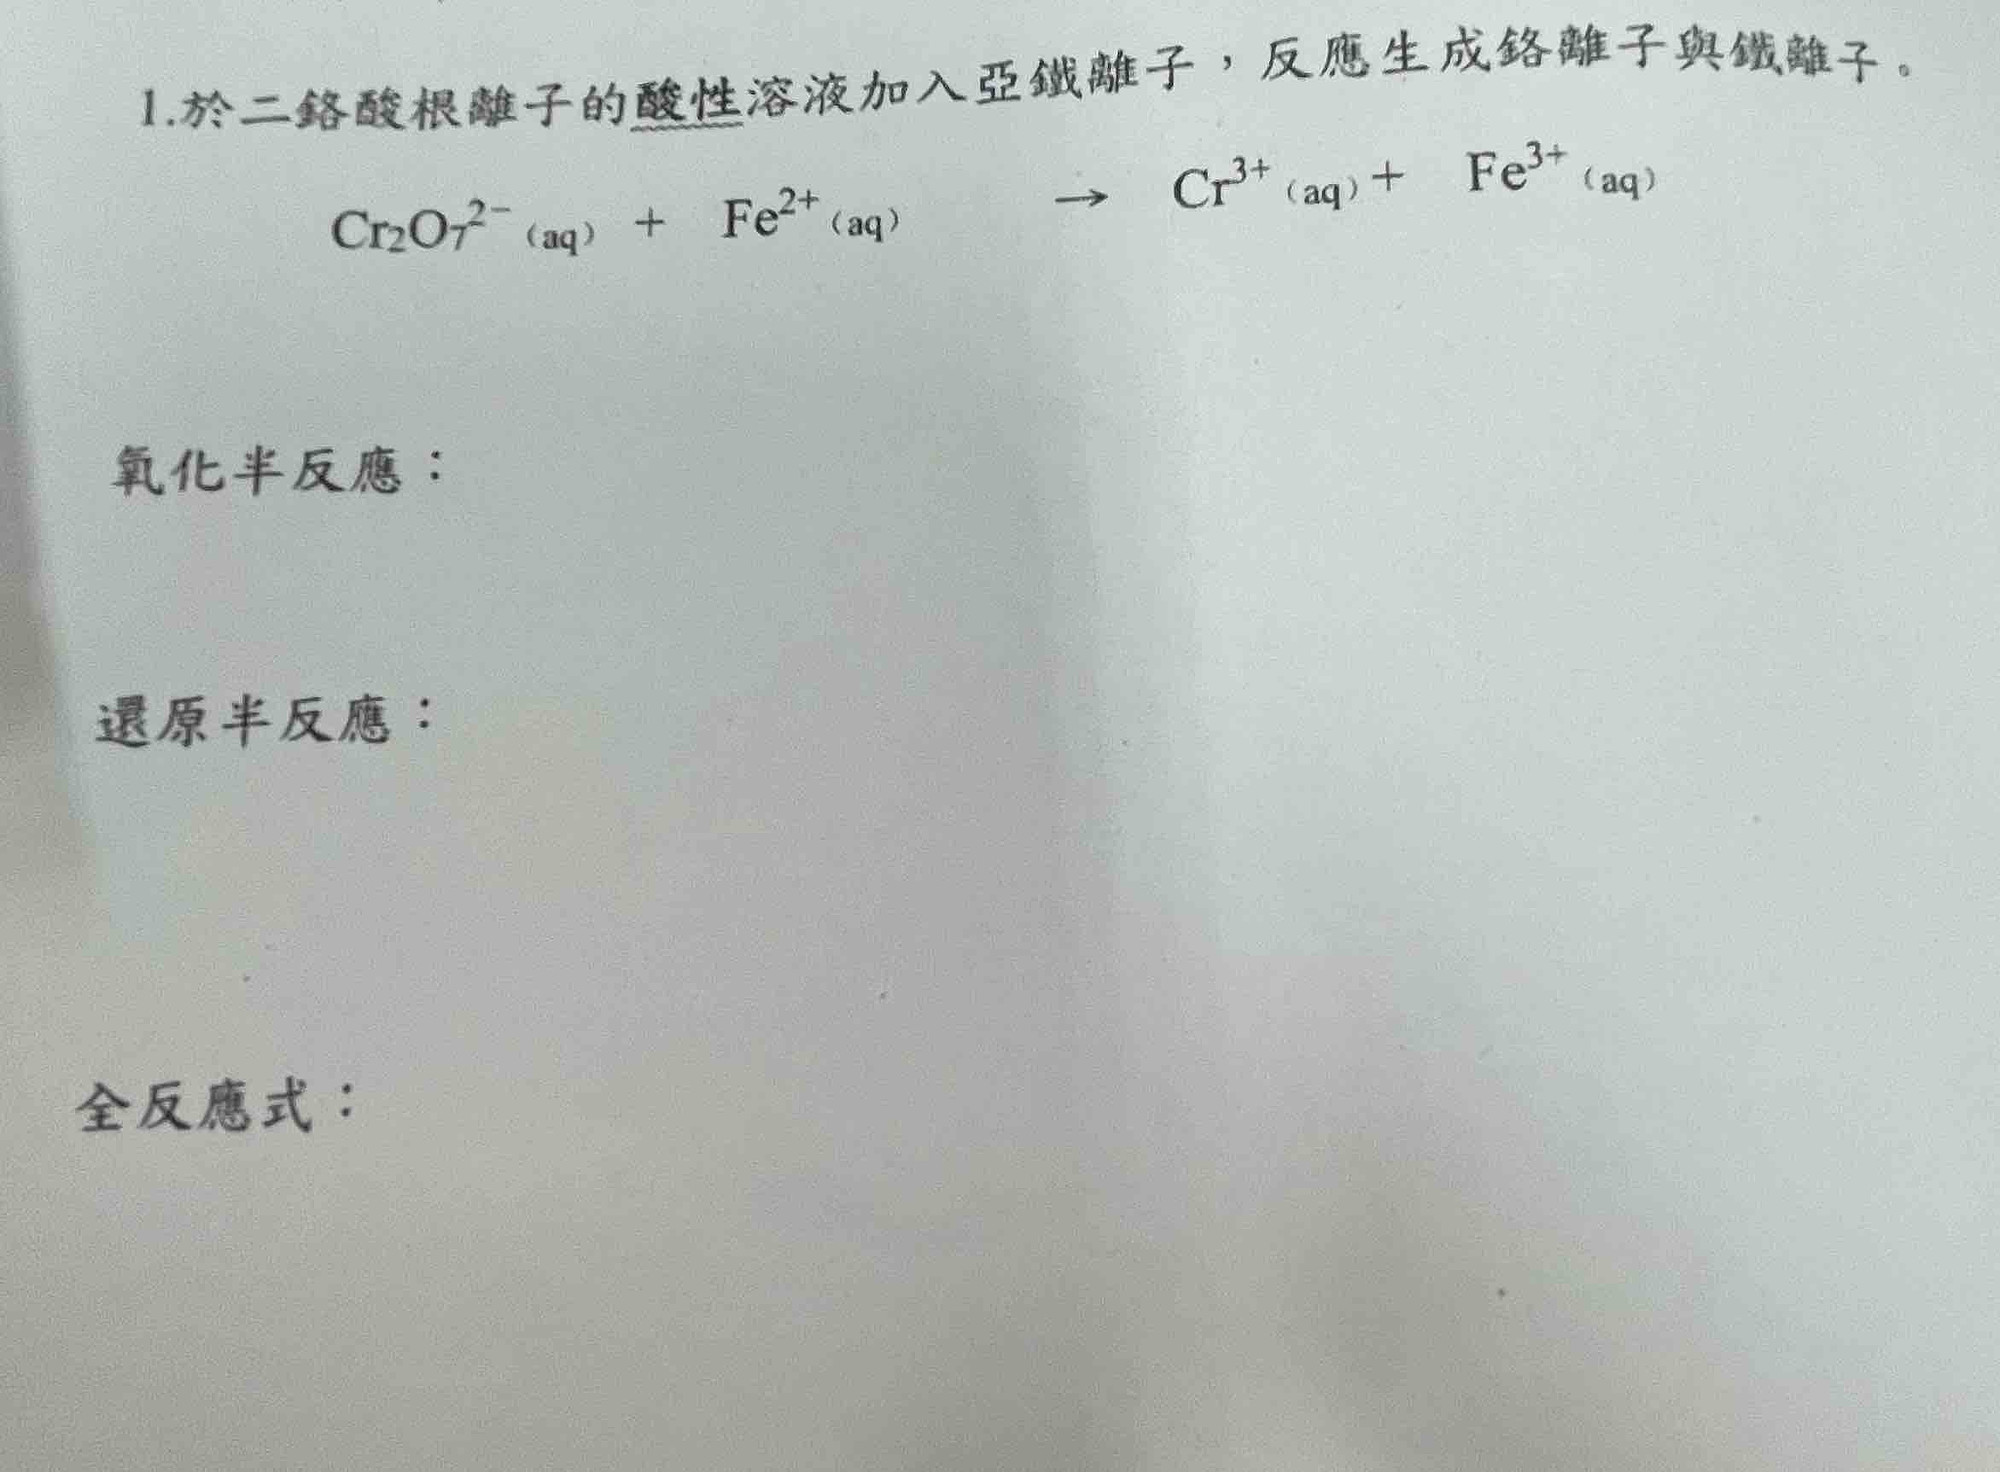 1.於二鉻酸根離子的酸性溶液加入亞鐵離子，反應生成鉻離子與鐵離子。
Cr₂O₇²⁻ (aq) + Fe²⁺ (aq) → Cr³⁺ (aq) + Fe³⁺ (aq)
氧化半反應：
還原半反應：
全反應式：